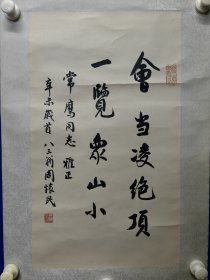 會当凌绝頂
一覽衆山小
常鹰同志 雅正
辛未歲首 八三翁周懷民